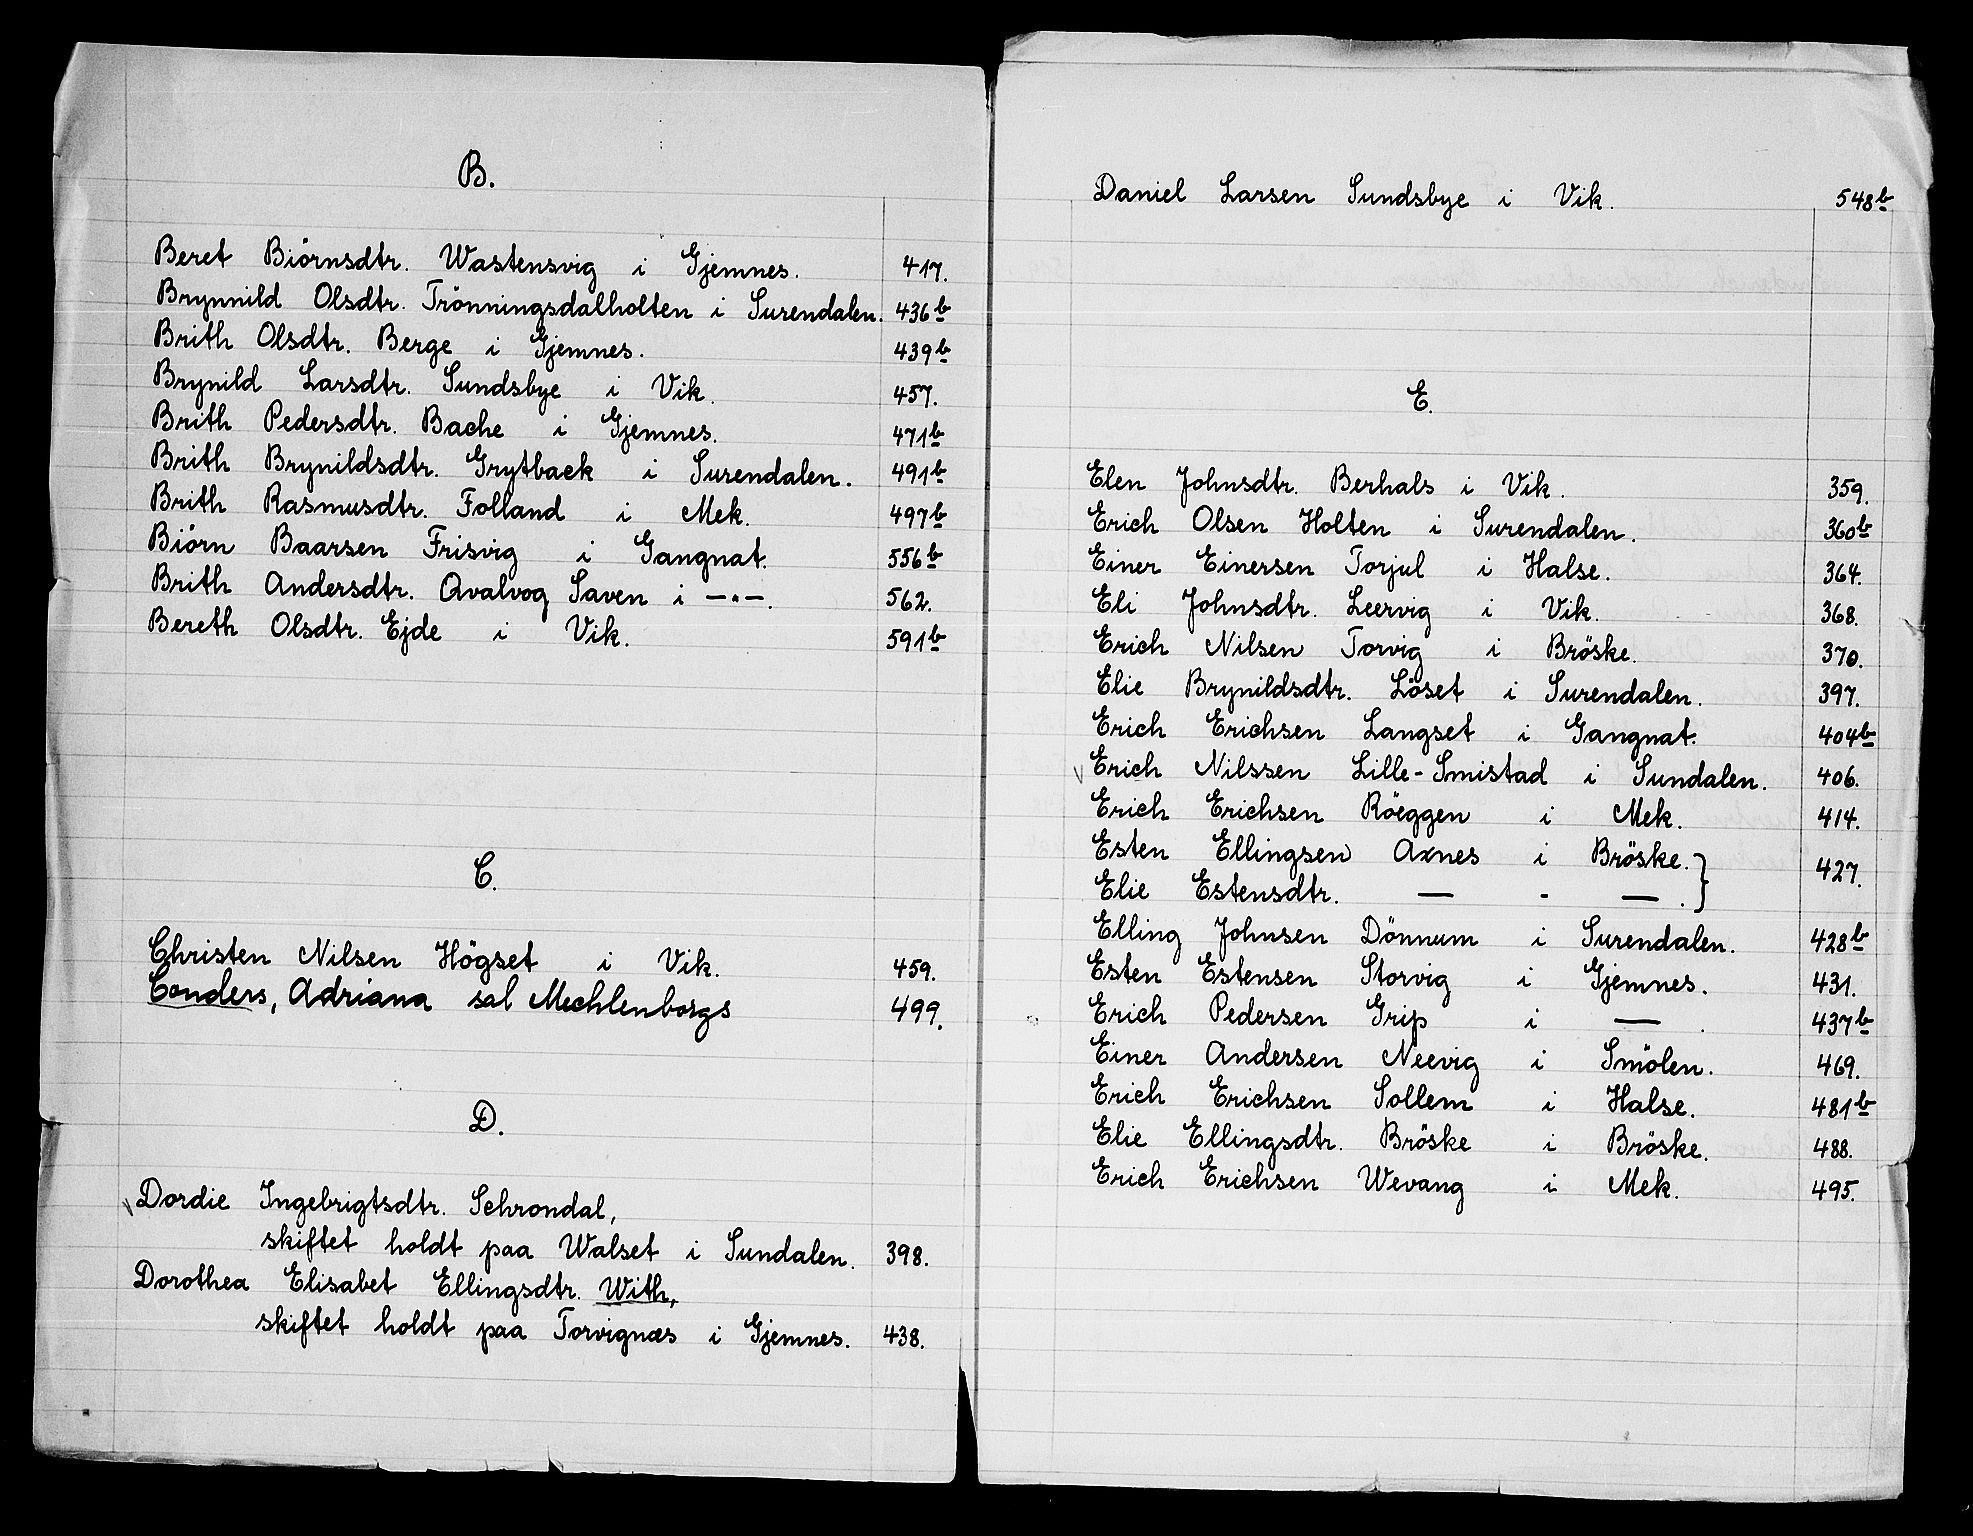 B.
Beret Biörnsdtr. Wastensvig i Gjemnes. 417.
Brynnild Olsdtr. Trönningsdalholten i Surendalen. 436b
Brith Olsdtr. Berge i Gjemnes. 439b
Brynild Larsdtr. Sundsbye i Vik. 457.
Brith Pedersdtr. Bache i Gjemnes. 471b
Brith Brynildsdtr. Grytback i Surendalen. 491b
Brith Rasmusdtr. Folland i Mek. 497b
Biörn Baarsen Frisvig i Gangnat. 556b
Brith Andersdtr. Qvalvog Saven i —"—. 562.
Bereth Olsdtr. Ejde i Vik. 591b
C.
Christen Nilsen Högset i Vik. 459.
Conders, Adriana sal Mechlenborgs 499.
D.
Dordie Ingebrigtsdtr. Schrondal,
skiftet holdt paa Walset i Sundalen. 398.
Dorothea Elisabet Ellingsdtr. With,
skiftet holdt paa Torvignæs i Gjemnes. 438.
Daniel Larsen Sundsbye i Vik. 548b
E.
Elen Johnsdtr. Berhals i Vik. 359.
Erich Olsen Holten i Surendalen. 360b
Einer Einersen Torjul i Halse. 364.
Eli Johnsdtr. Leervig i Vik. 368.
Erich Nilsen Torvig i Bröske. 370.
Elie Brynildsdtr. Löset i Surendalen. 397.
Erich Erichsen Langset i Gangnat. 404b
Erich Nilssen Lille-Smistad i Sundalen. 406.
Erich Erichsen Röeggen i Mek. 414.
Esten Ellingsen Axnes i Bröske. } 427.
Elie Estensdtr. — - —. }
Elling Johnsen Dönnum i Surendalen. 428b
Esten Estensen Storvig i Gjemnes. 431.
Erich Pedersen Grip i —. 437b
Einer Andersen Neevig i Smölen. 469.
Erich Erichsen Sollem i Halse. 481b
Elie Ellingsdtr. Bröske i Bröske. 488.
Erich Erichsen Wevang i Mek. 495.